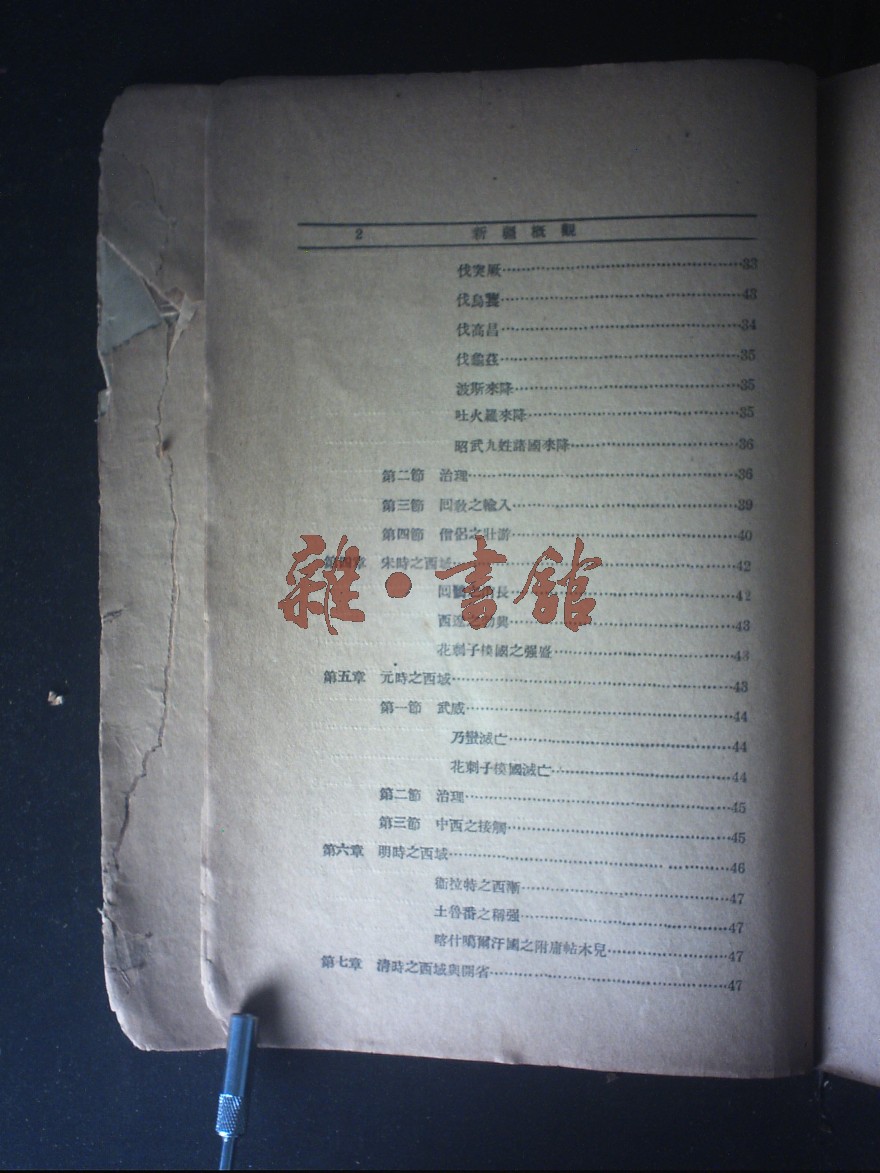 2 新疆概觀
伐突厥…33
伐烏…43
伐高昌…34
伐龜茲…35
波斯來降…35
吐火羅來降…35
昭武九姓諸國來降…36
第二節 治理…36
第三節 回敎之輸入…39
第四節 僧侶之壯游…40
第四章 宋時之西域…42
回鶻之消長…42
西遼之勃興…43
花剌子模國之强盛…43
第五章 元時之西域…43
第一節 武威…44
乃蠻滅亡…44
花剌子模國滅亡…44
第二節 治理…45
第三節 中西之接觸…45
第六章 明時之西域…46
衛拉特之西漸…47
土魯番之稱强…47
喀什噶爾汗國之附庸帖木兒…47
第七章 清時之西域與開省…47
雜·書館